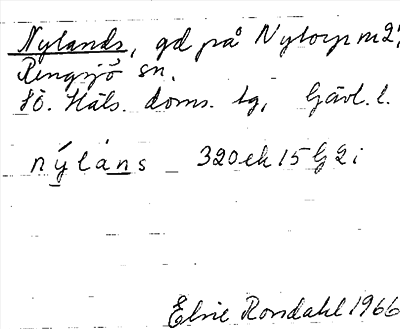 Nylands, gd på Nytorp m 2,
Rengsjö sn.
Sö. Häls. doms. tg, Gävl. l.
nýlàns 320 ek 15 G 2 i
Elsie Rondahl 1966